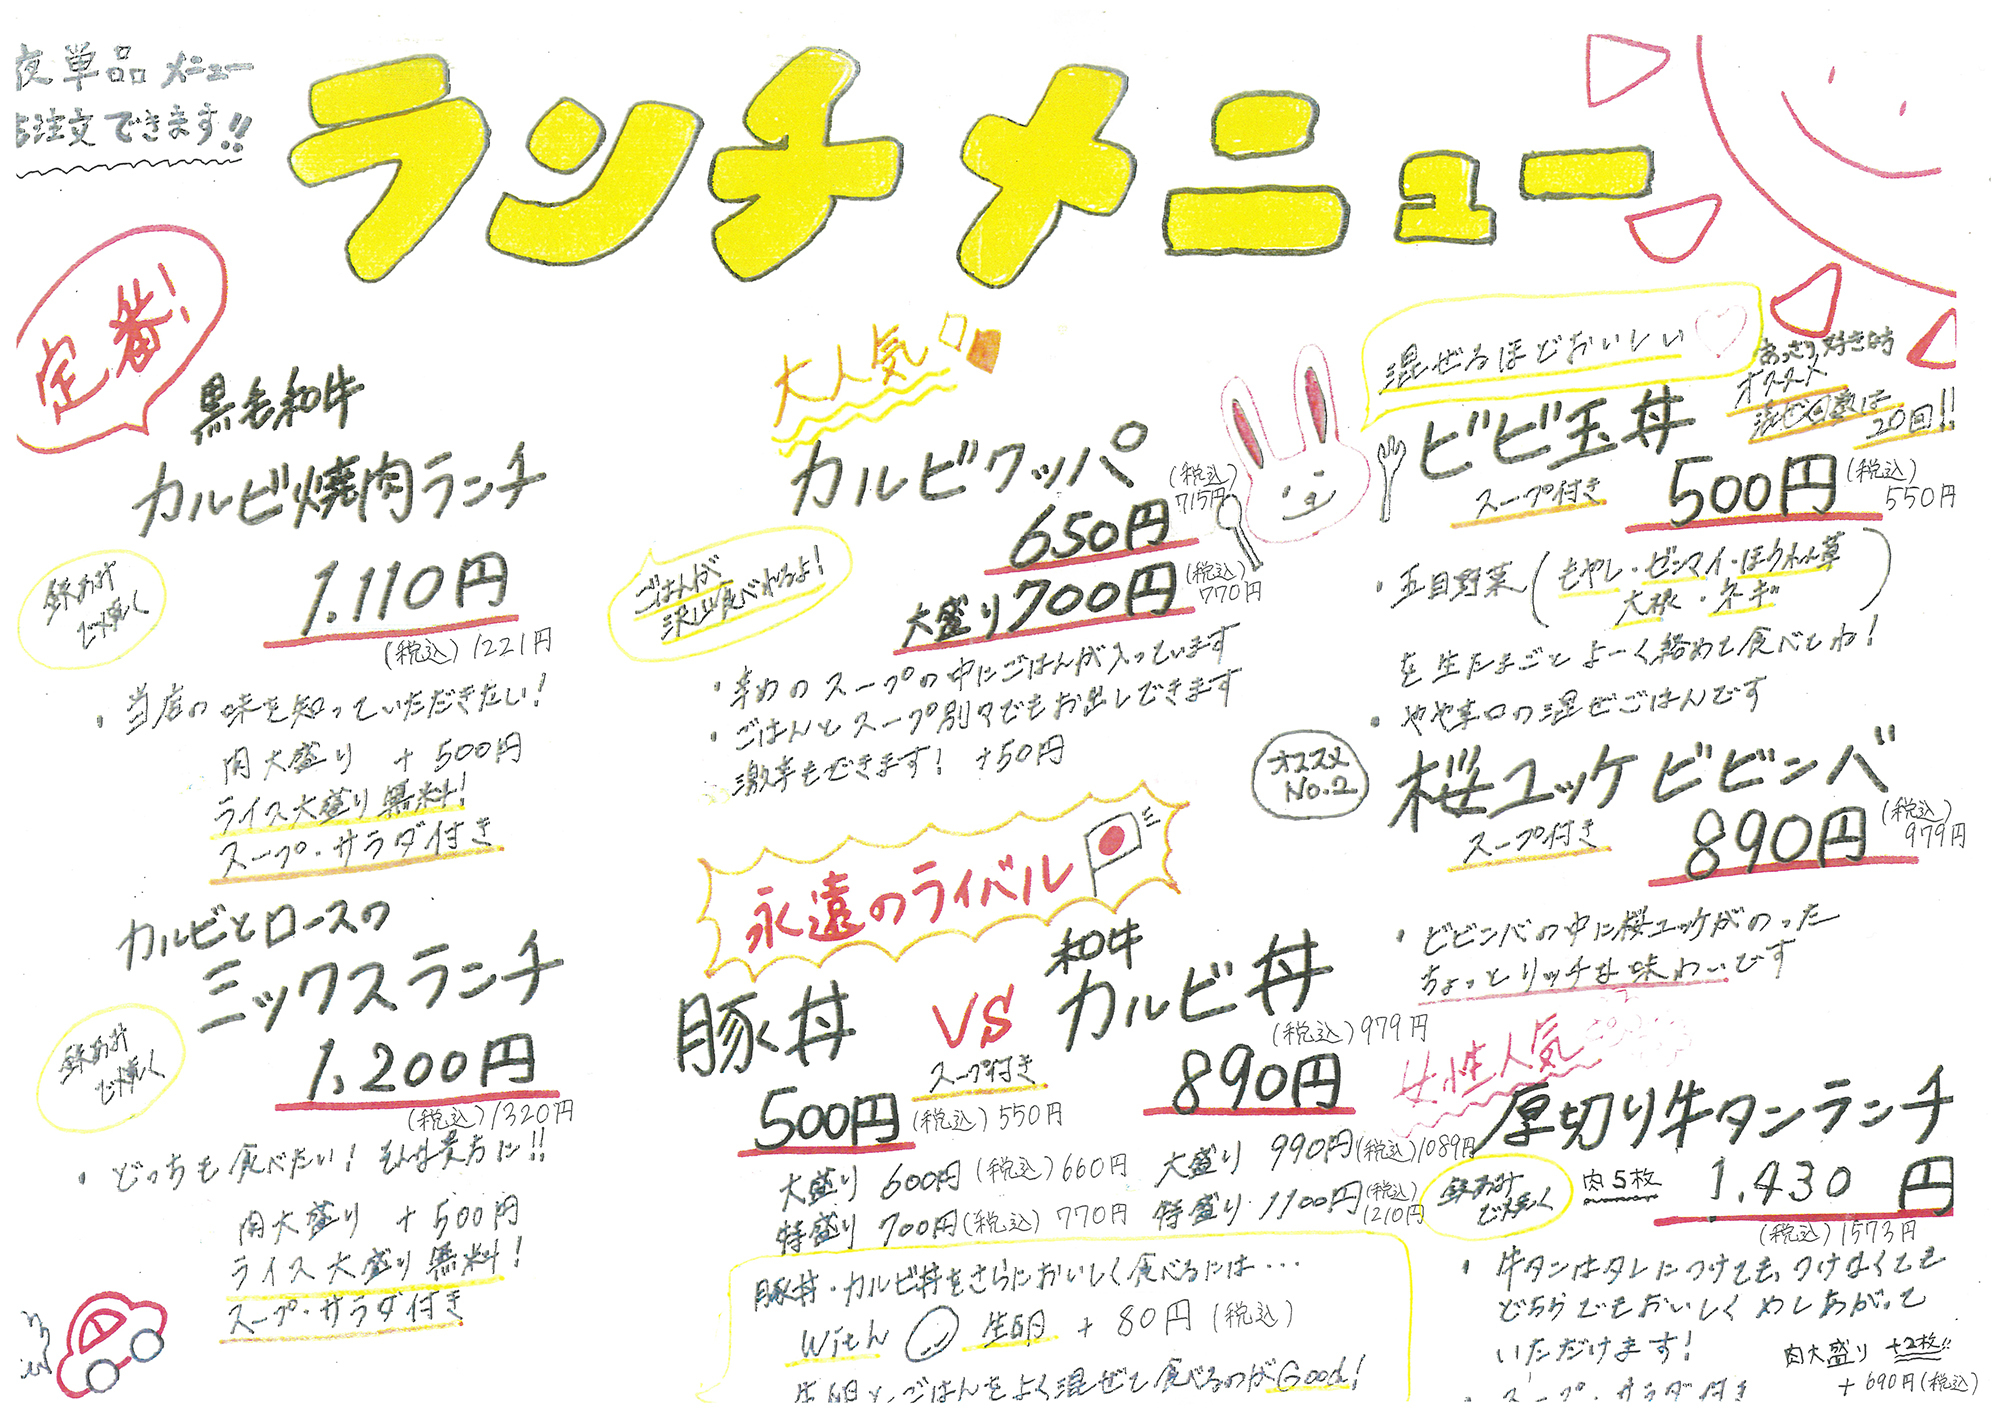 夜単品メニュー
ご注文できます!!
ランチメニュー
定番!
黒毛和牛
カルビ焼肉ランチ
鉄あみ
で焼く
1.110円
(税込)1221円
・当店の味を知っていただきたい!
肉大盛り +500円
ライス大盛り無料!
スープ・サラダ付き
カルビとロースの
ミックスランチ
鉄あみ
で焼く
1.200円
(税込)1320円
・どっちも食べたい!そんな貴方に!!
肉大盛り +500円
ライス大盛り無料!
スープ・サラダ付き
大人気
カルビクッパ
650円
(税込)
715円
大盛り700円
(税込)
770円
ごはんが
沢山食べれるよ!
・辛めのスープの中にごはんが入っています
・ごはんとスープ別々でもお出しできます
激辛もできます! +50円
永遠のライバル
豚丼
VS
和牛
カルビ丼
スープ付き
500円
(税込)550円
大盛り 600円(税込)660円
特盛り 700円(税込)770円
(税込)979円
890円
大盛り 990円(税込)1089円
特盛り 1100円(税込)
1210円
豚丼・カルビ丼をさらにおいしく食べるには・・・
with 生卵 +80円(税込)
生卵とごはんをよく混ぜて食べるのがGood!
混ぜるほどおいしい
あっさり好きな方
オススメ
混ぜ回数は
20回!!
ビビ玉丼
スープ付き
500円
(税込)
550円
・五目野菜(もやし・ゼンマイ・ほうれん草
大根・ネギ)
を生たまごとよーく絡めて食べてね!
・やや辛口の混ぜごはんです
オススメ
No.2
桜ユッケビビンバ
スープ付き
890円
(税込)
979円
・ビビンバの中に桜ユッケがのった
ちょっとリッチな味わいです
女性人気
厚切り牛タンランチ
鉄あみ
で焼く
肉5枚
1.430円
(税込)1573円
・牛タンはタレにつけても、つけなくても
どちらでもおいしくめしあがって
いただけます!
肉大盛り +2枚!!
+690円(税込)
・スープ・サラダ付き